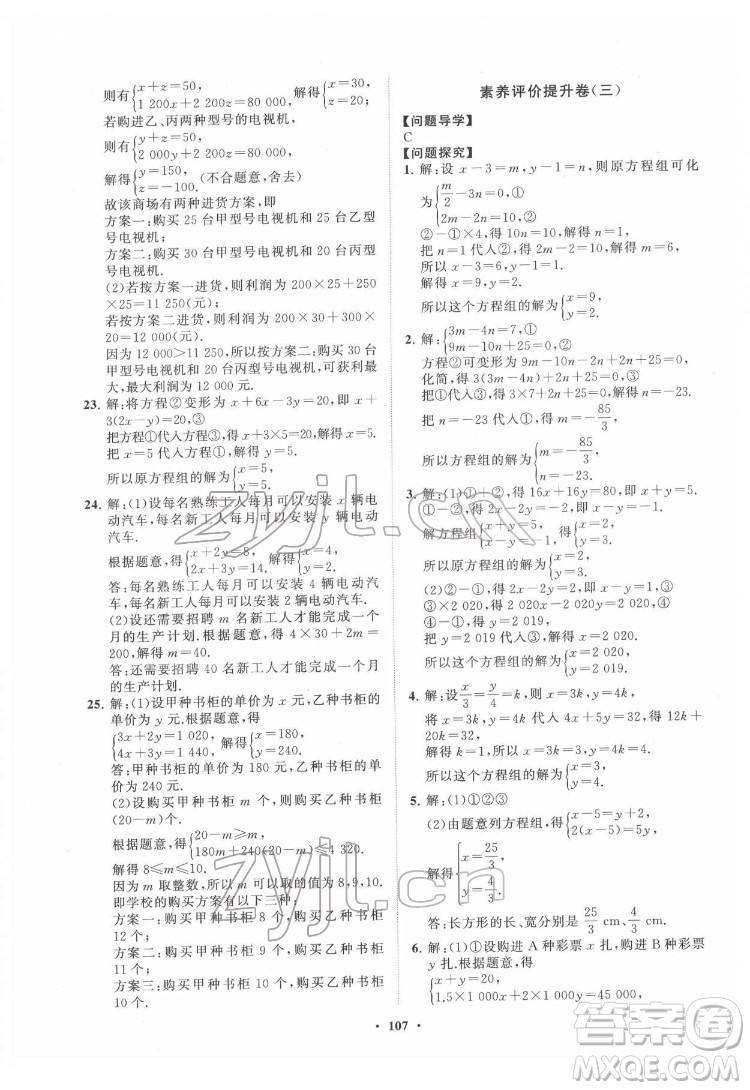 则有{x+z=50, 1 200x+2 200z=80 000, 解得{x=30, z=20;
若购进乙、丙两种型号的电视机,
则有{y+z=50, 2 000y+2 200z=80 000,
解得{y=150, z=-100. (不合题意,舍去)
故该商场有两种进货方案,即
方案一:购买 25 台甲型号电视机和 25 台乙型
号电视机;
方案二:购买 30 台甲型号电视机和 20 台丙型
号电视机.
(2)若按方案一进货,则利润为 200×25+250
×25=11 250(元);
若按方案二进货,则利润为 200×30+300×
20=12 000(元).
因为 12 000>11 250,所以方案二:购买 30 台
甲型号电视机和 20 台丙型号电视机,可获利
最大,最大利润为 12 000 元.
23. 解:将方程②变形为 x+6x-3y=20,即 x+
3(2x-y)=20,③
把方程①代入方程③,得 x+3×5=20,得 x=5.
把 x=5 代入方程①,得 y=5.
所以原方程组的解为{x=5, y=5.
24. 解:(1)设每名熟练工人每月可以安装 x 辆电
动汽车,每名新工人每月可以安装 y 辆电动
汽车.
根据题意,得{x+2y=8, 2x+3y=14, 解得{x=4, y=2.
答:每名熟练工人每月可以安装 4 辆电动汽
车,每名新工人每月可以安装 2 辆电动汽车.
(2)设还需要招聘 m 名新工人才能完成一个
月的生产计划.根据题意,得 4×30+2m=
200.解得 m=40.
答:还需要招聘 40 名新工人才能完成一个月
的生产计划.
25. 解:(1)设甲种书柜的单价为 x 元,乙种书柜
的单价为 y 元.根据题意,得
{3x+2y=1 020, 4x+3y=1 440, 解得{x=180, y=240.
答:甲种书柜的单价为 180 元,乙种书柜的单
价为 240 元.
(2)设购买甲种书柜 m 个,则购买乙种书柜
(20-m)个.
根据题意,得{20-m≥m, 180m+240(20-m)≤4 320.
解得 8≤m≤10.
因为 m 取整数,所以 m 可以取的值为 8,9,10.
即学校的购买方案有以下三种:
方案一:购买甲种书柜 8 个,购买乙种书柜
12 个;
方案二:购买甲种书柜 9 个,购买乙种书柜
11 个;
方案三:购买甲种书柜 10 个,购买乙种书柜
10 个.
素养评价提升卷(三)
【问题导学】
C
【问题探究】
1. 解:设 x-3=m,y-1=n,则原方程组可化
为{m/2-3n=0,① 2m-2n=10,②
②-①×4,得 10n=10,解得 n=1,
把 n=1 代入②,得 2m-2=10,解得 m=6.
所以 x=9,y=2.
所以这个方程组的解为{x=9, y=2.
2. 解:{3m-4n=7,① 9m-10n+25=0,②
方程②可变形为 9m-12n+2n+25=0,
化简,得 3(3m-4n)+2n+25=0,③
把①代入③,得 3×7+2n+25=0,
解得 n=-23,
把 n=-23 代入①,得 m=-85/3,
所以方程组的解为{m=-85/3, n=-23.
3. 解:(1)①+②,得 16x+16y=128,即 x+y=8.
②-①,得 2x-2y=4,即 x-y=2.
解方程组{x+y=8, x-y=2, 得{x=5, y=3.
(2)②-①,得 2x-2y=2,即 x-y=1.③
③×2 020,得 2 020x-2 020y=2 020.④
④-①,得 x=2 020.
④-②,得 y=2 019.
所以原方程组的解为{x=2 020, y=2 019.
4. 解:设x/3=y/4=k,则 x=3k,y=4k,
将 x=3k,y=4k 代入 4x-3y+5z=20,得
解得 x=9, y=12.
5. 解:(1)①②③
(2)由题意列方程组,得{x-5=y+2, 2(x-5)=5y.
解得{x=25/3, y=4/3.
答:长方形的长、宽分别是 25/3 cm、4/3 cm.
6. 解:(1)①设购进 A 种彩票 x 扎,购进 B 种彩票
y 扎.根据题意,得
{x+y=20,
1.5×1 000x+2×1 000y
zyjl.cn
zyjl.cn
107
答案卷
MXQE.COM